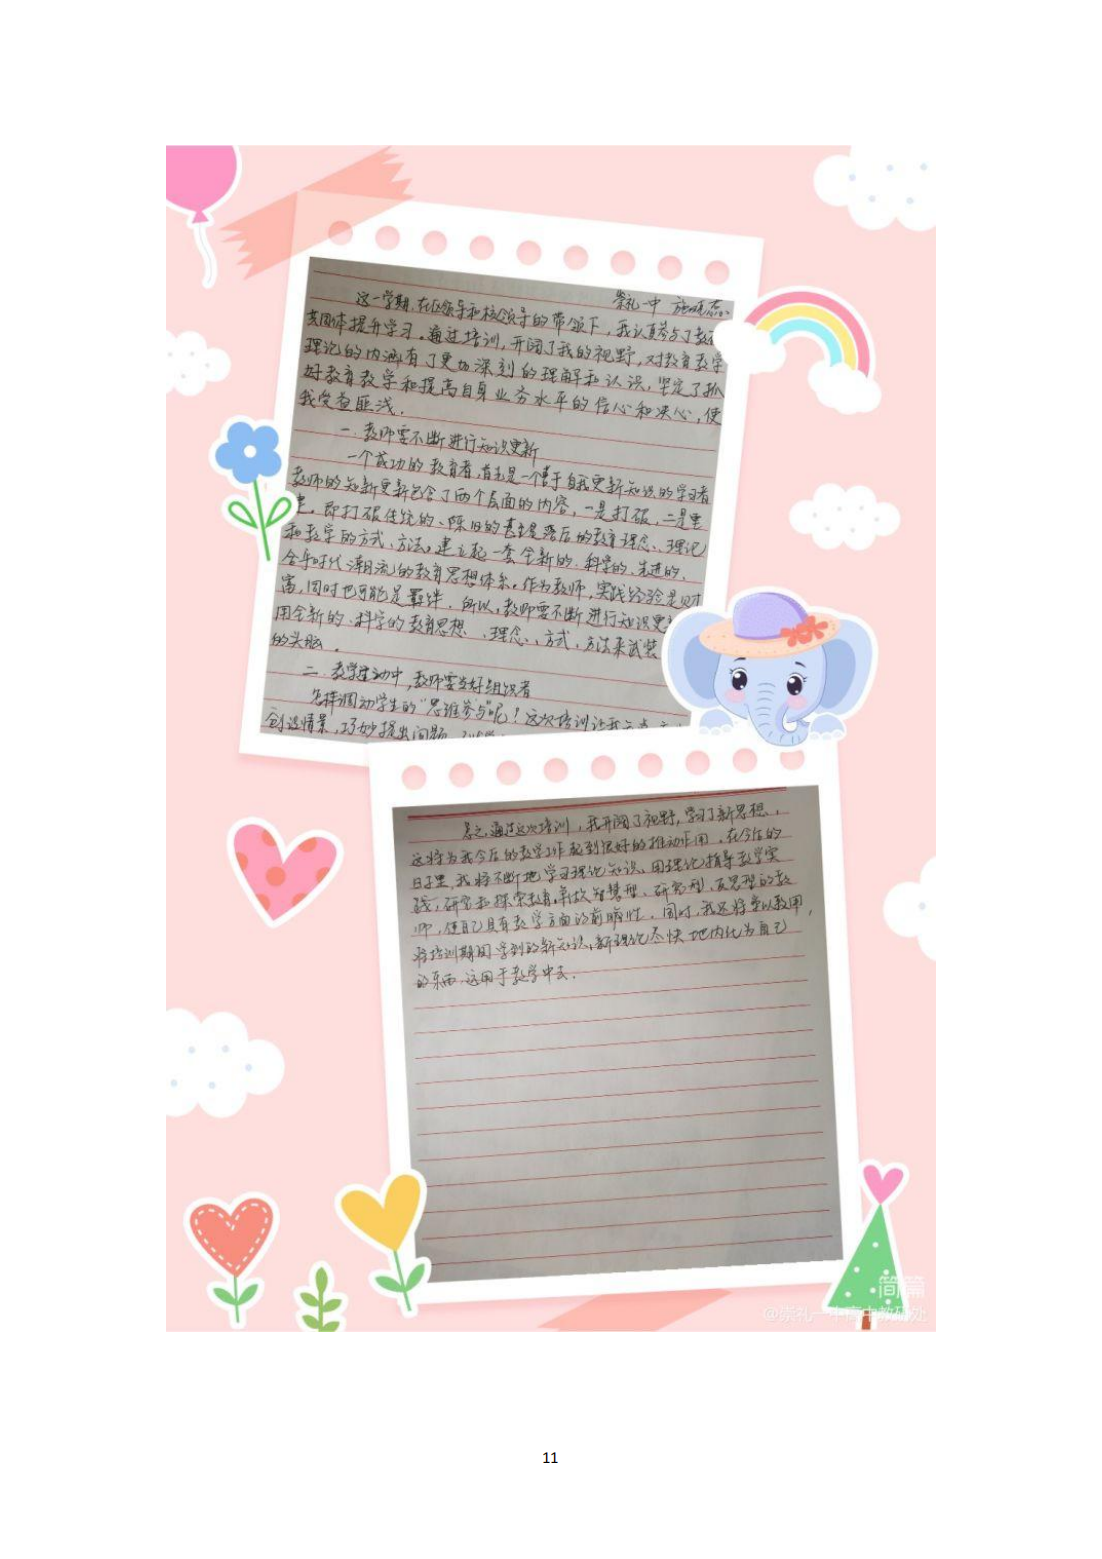 崇礼一中
这一学期,在区领导和校领导的带领下,我认真参与了教研
共同体提升学习。通过培训,开阔了我的视野,对教育教学
理论的内涵有了更加深刻的理解和认识,坚定了抓
好教育教学和提高自身业务水平的信心和决心,使
我受益匪浅。
一.教师要不断进行知识更新
一个成功的教育者,首先是一个善于自我更新知识的学习者
教师的知新更新包含了两个层面的内容,一是打破,二是重
建。即打破传统的、陈旧的甚至是落后的教育理念、理论
和教学的方式、方法。建立起一套全新的.科学的.先进的、
合乎时代潮流的教育思想体系。作为教师,实践经验是财
富,同时也可能是羁绊。所以,教师要不断进行知识更
用全新的.科学的教育思想、理念、方式、方法来武装
的头脑。
二.教学活动中,教师要当好组织者
怎样调动学生的"思维参与"呢!这次培训让我
创设情景,巧妙提出问题
总之,通过这次培训,我开阔了视野,学习了新思想,
这将为我今后的教学工作起到很好的推动作用。在今后的
日子里,我将不断地学习理论知识、用理论指导教学实
践,研究和探索教育,争做智慧型、研究型、反思型的教
师,使自己具有教学方面的前瞻性。同时,我还将学以致用,
将培训期间学到的新知识,新理论尽快地内化为自己
的东西,运用于教学中去.
简篇
@崇礼一中高中教研处
11